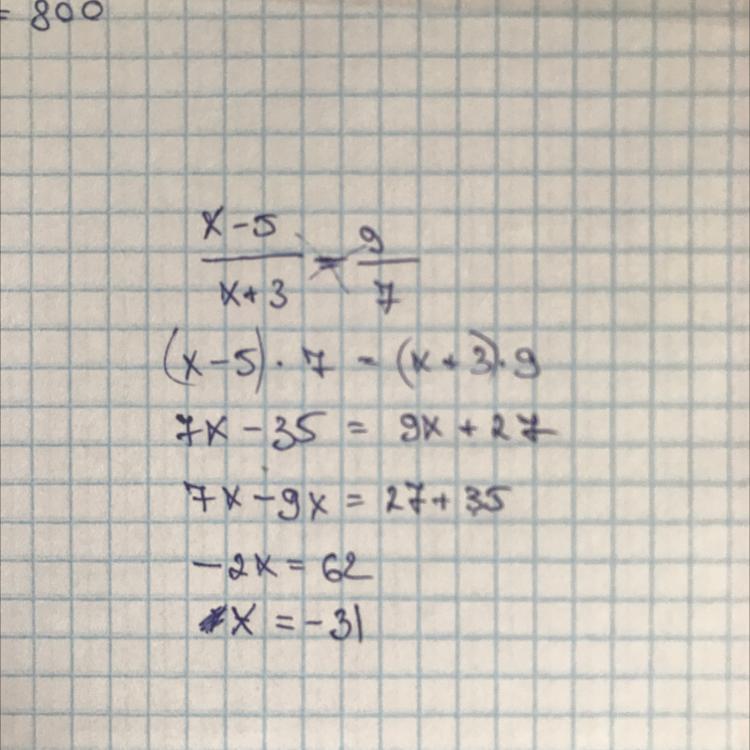 = 800
x - 5 / x + 3 = 9 / 7
(x - 5) · 7 = (x + 3) · 9
7x - 35 = 9x + 27
7x - 9x = 27 + 35
- 2x = 62
x = - 31